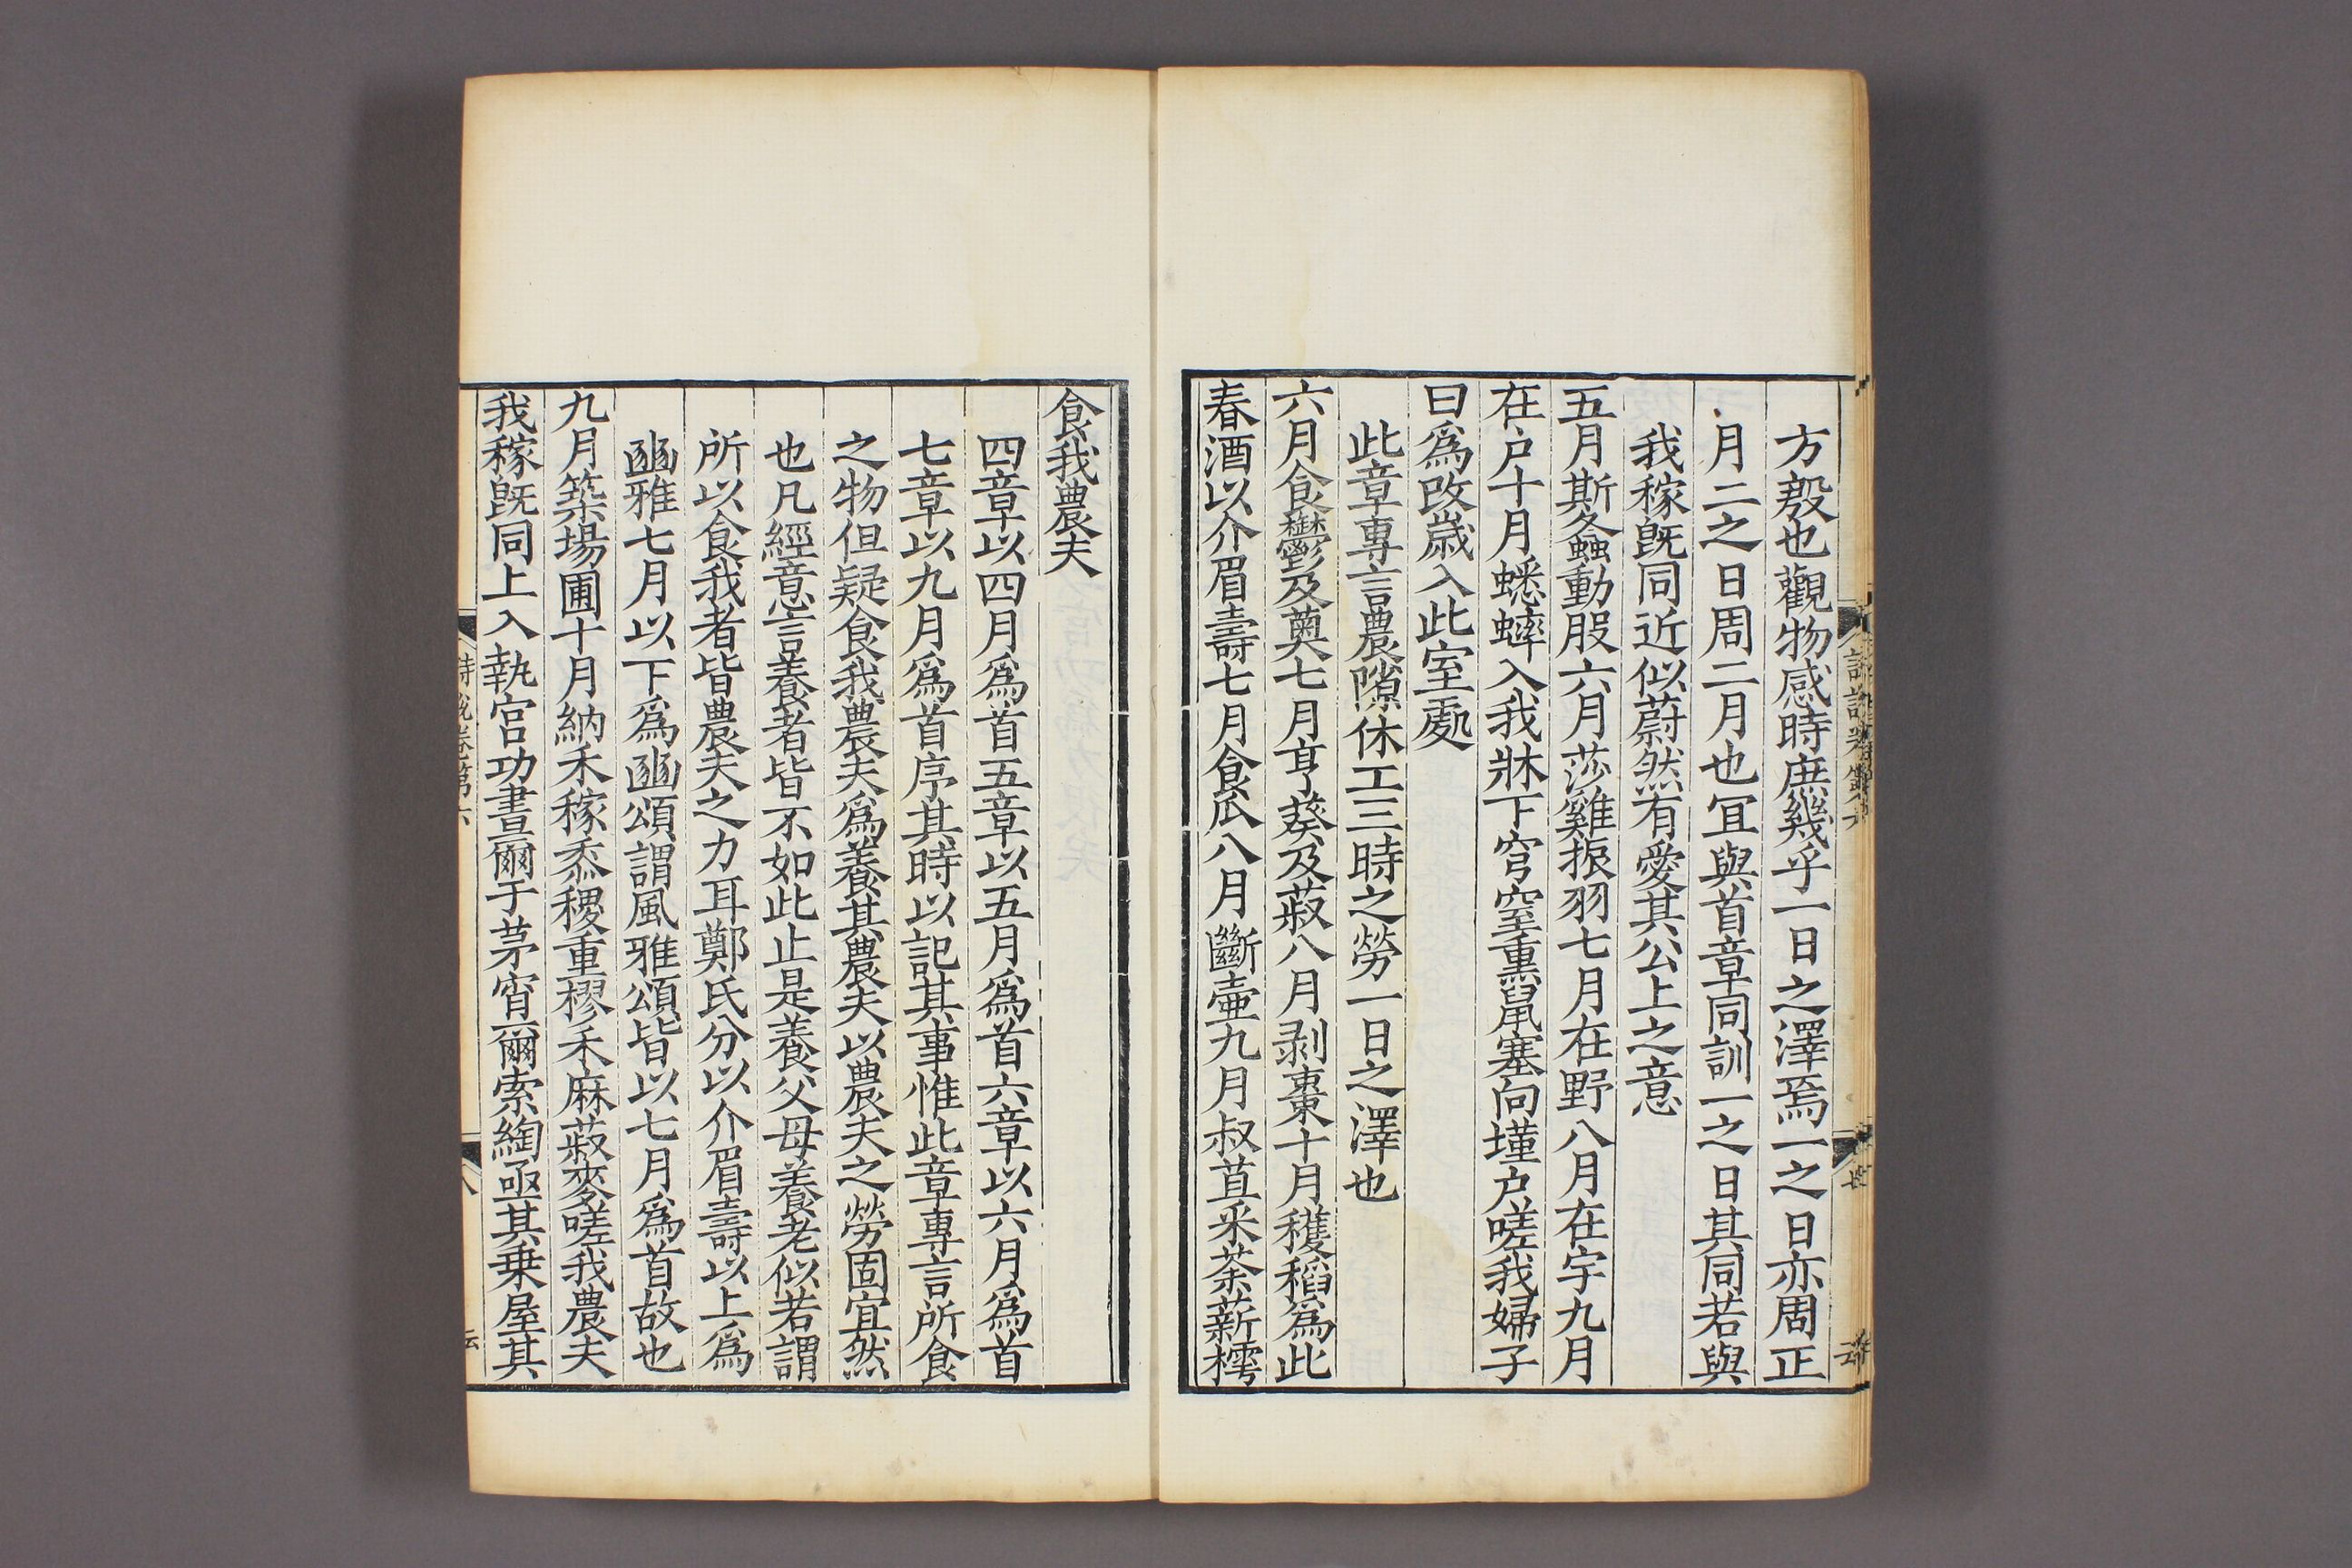 方彀也觀物感時庶幾乎一日之澤焉一之日亦周正
月二之日周二月也冝與首章同訓一之日其同若與
我稼既同近似蔚然有愛其公上之意
五月斯螽動股六月莎雞振羽七月在野八月在宇九月
在户十月蟋蟀入我牀下穹窒熏鼠塞向墐户嗟我婦子
曰爲改歲入此室處
此章專言農隙休工三時之勞一日之澤也
六月食鬱及薁七月亨葵及菽八月剥棗十月穫稻爲此
春酒以介眉壽七月食瓜八月斷壷九月叔苴采荼薪樗
食我農夫
四章以四月爲首五章以五月爲首六章以六月爲首
七章以九月爲首序其時以記其事惟此章專言所食
之物但疑食我農夫爲養其農夫以農夫之勞固宜然
也凡經意言養者皆不如此止是養父母養老似若謂
所以食我者皆農夫之力耳鄭氏分以介眉壽以上爲
豳雅七月以下爲豳頌謂風雅頌皆以七月爲首故也
九月築場圃十月納禾稼黍稷重穋禾麻菽麥嗟我農夫
我稼既同上入執宫功晝爾于茅宵爾索綯亟其乗屋其
詩說卷第六
八